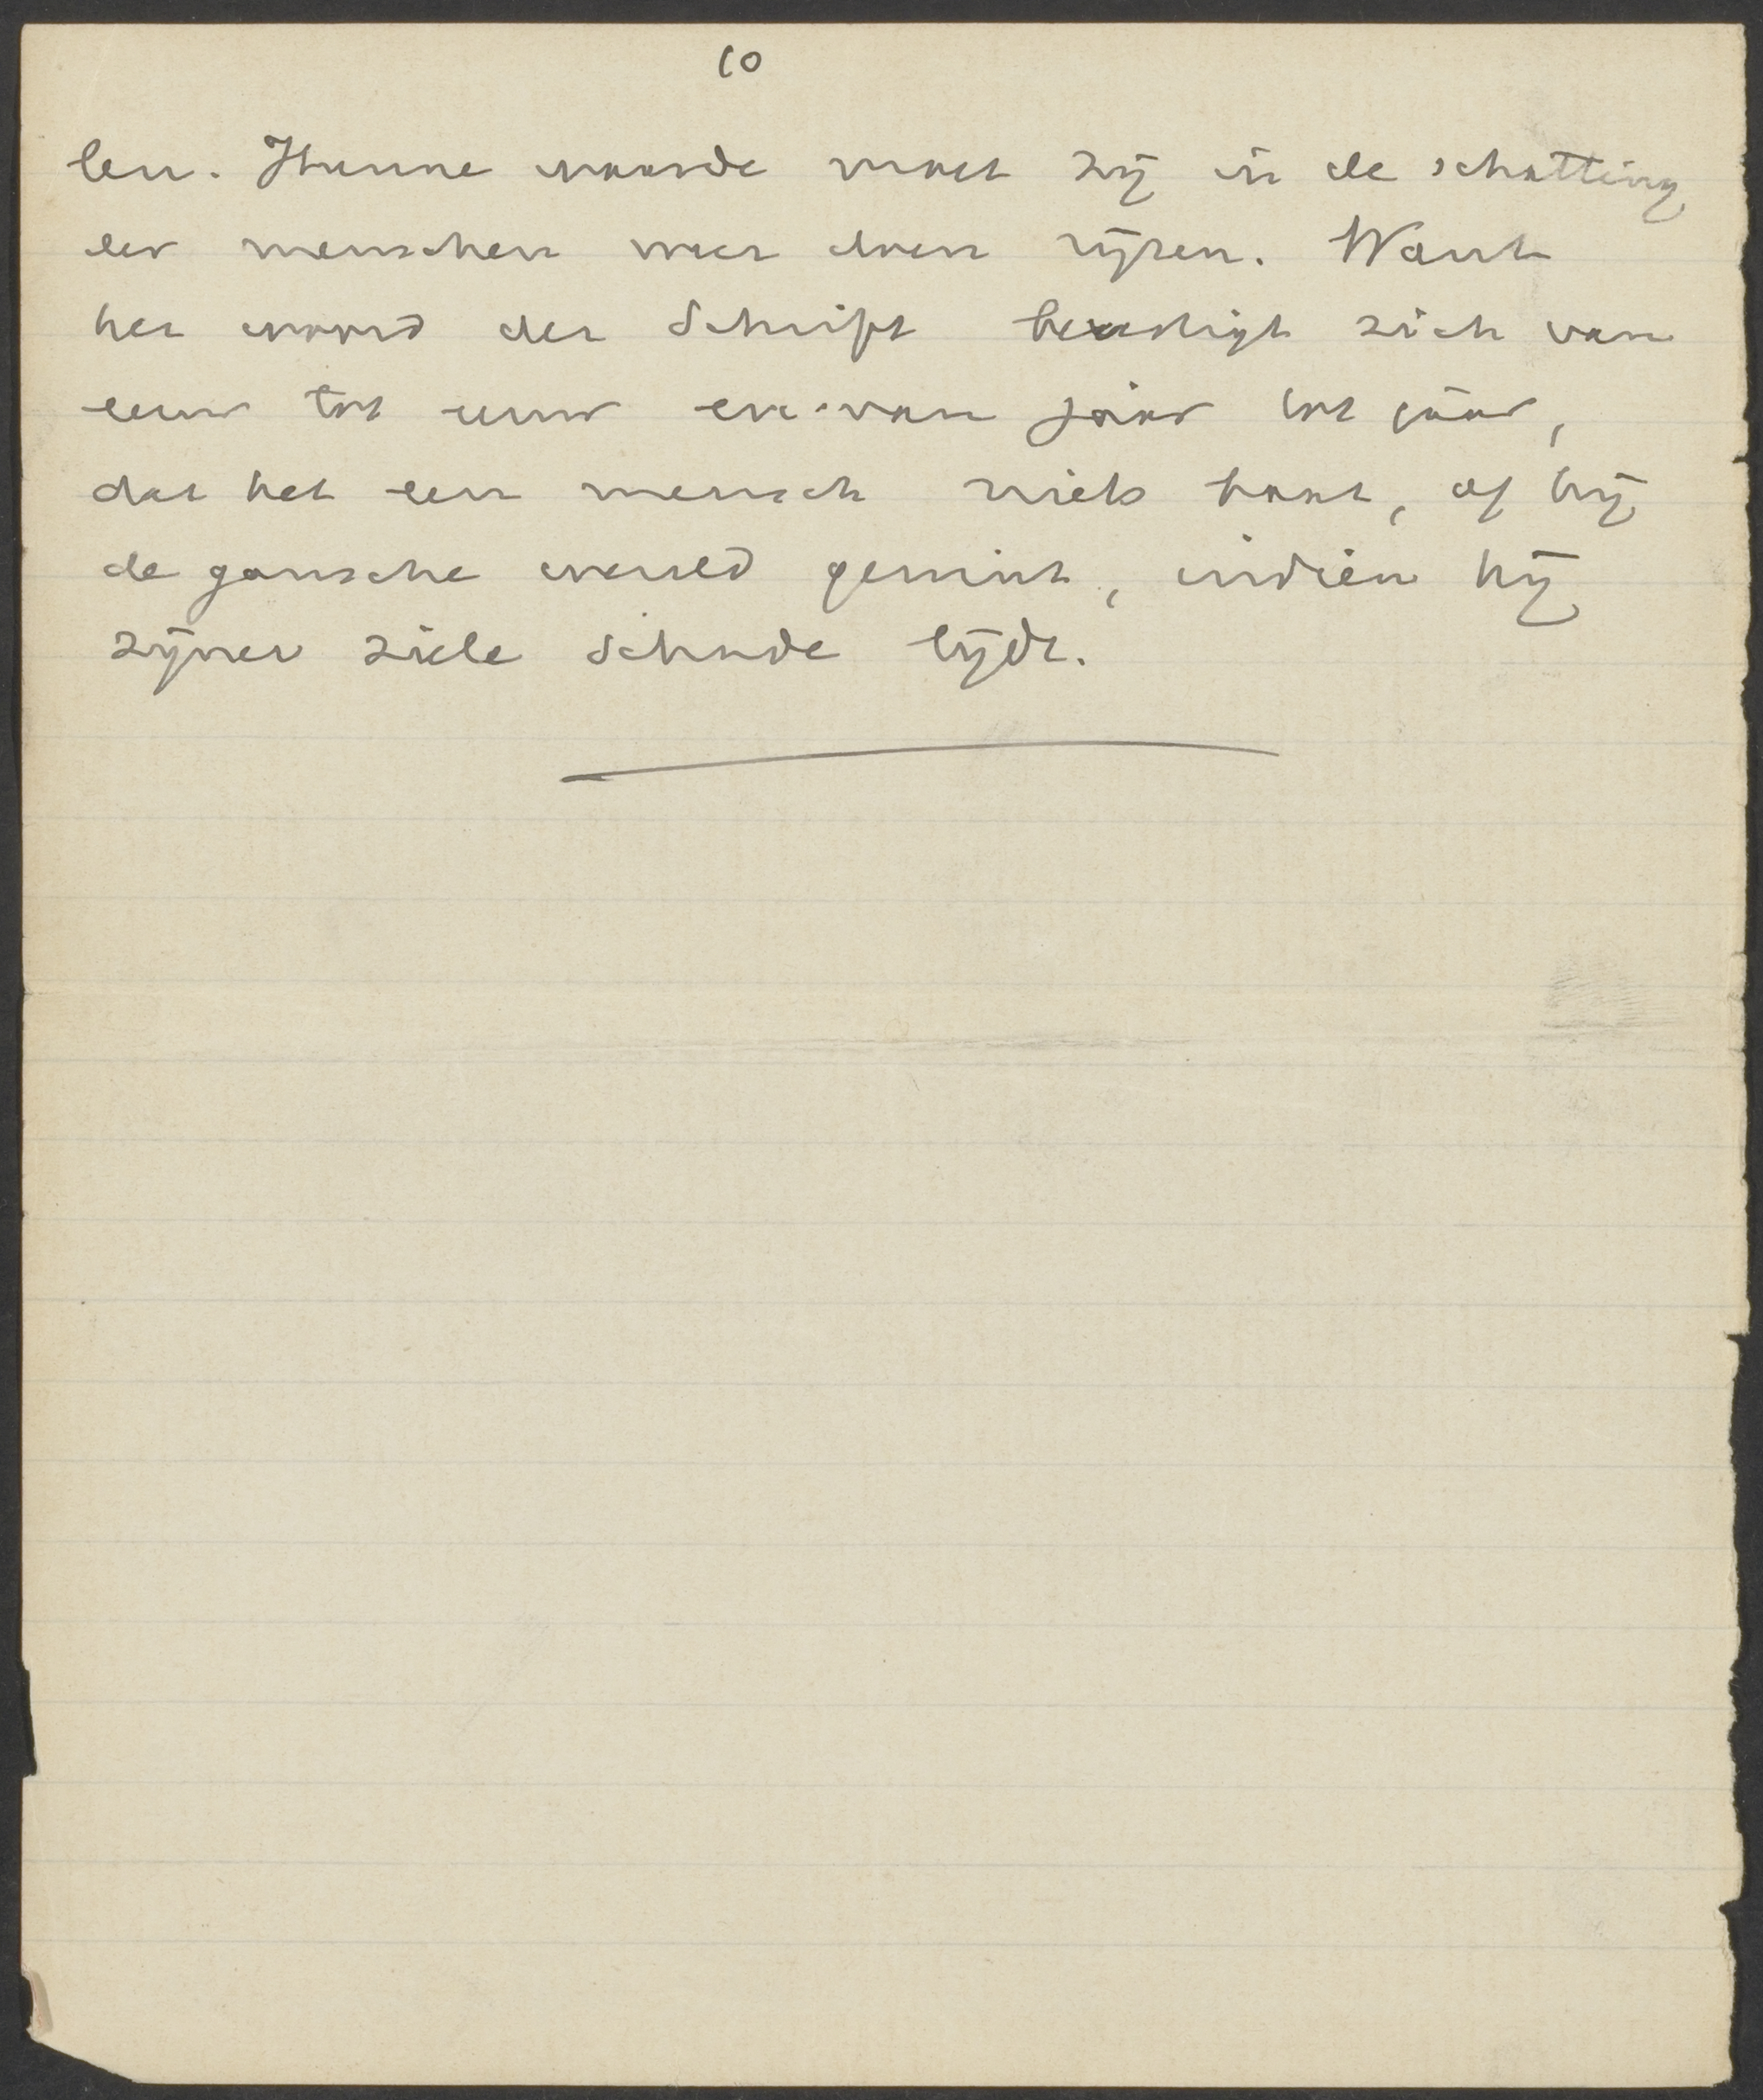 10
len. Hunne waarde moet zij in de schatting
der menschen weer doen rijzen. Want
het woord der Schrift bevestigt zich van
eeuw tot eeuw en van jaar tot jaar,
dat het een mensch niets baat, of hij
de gansche wereld gewint, indien hij
zijner ziele schade lijdt.